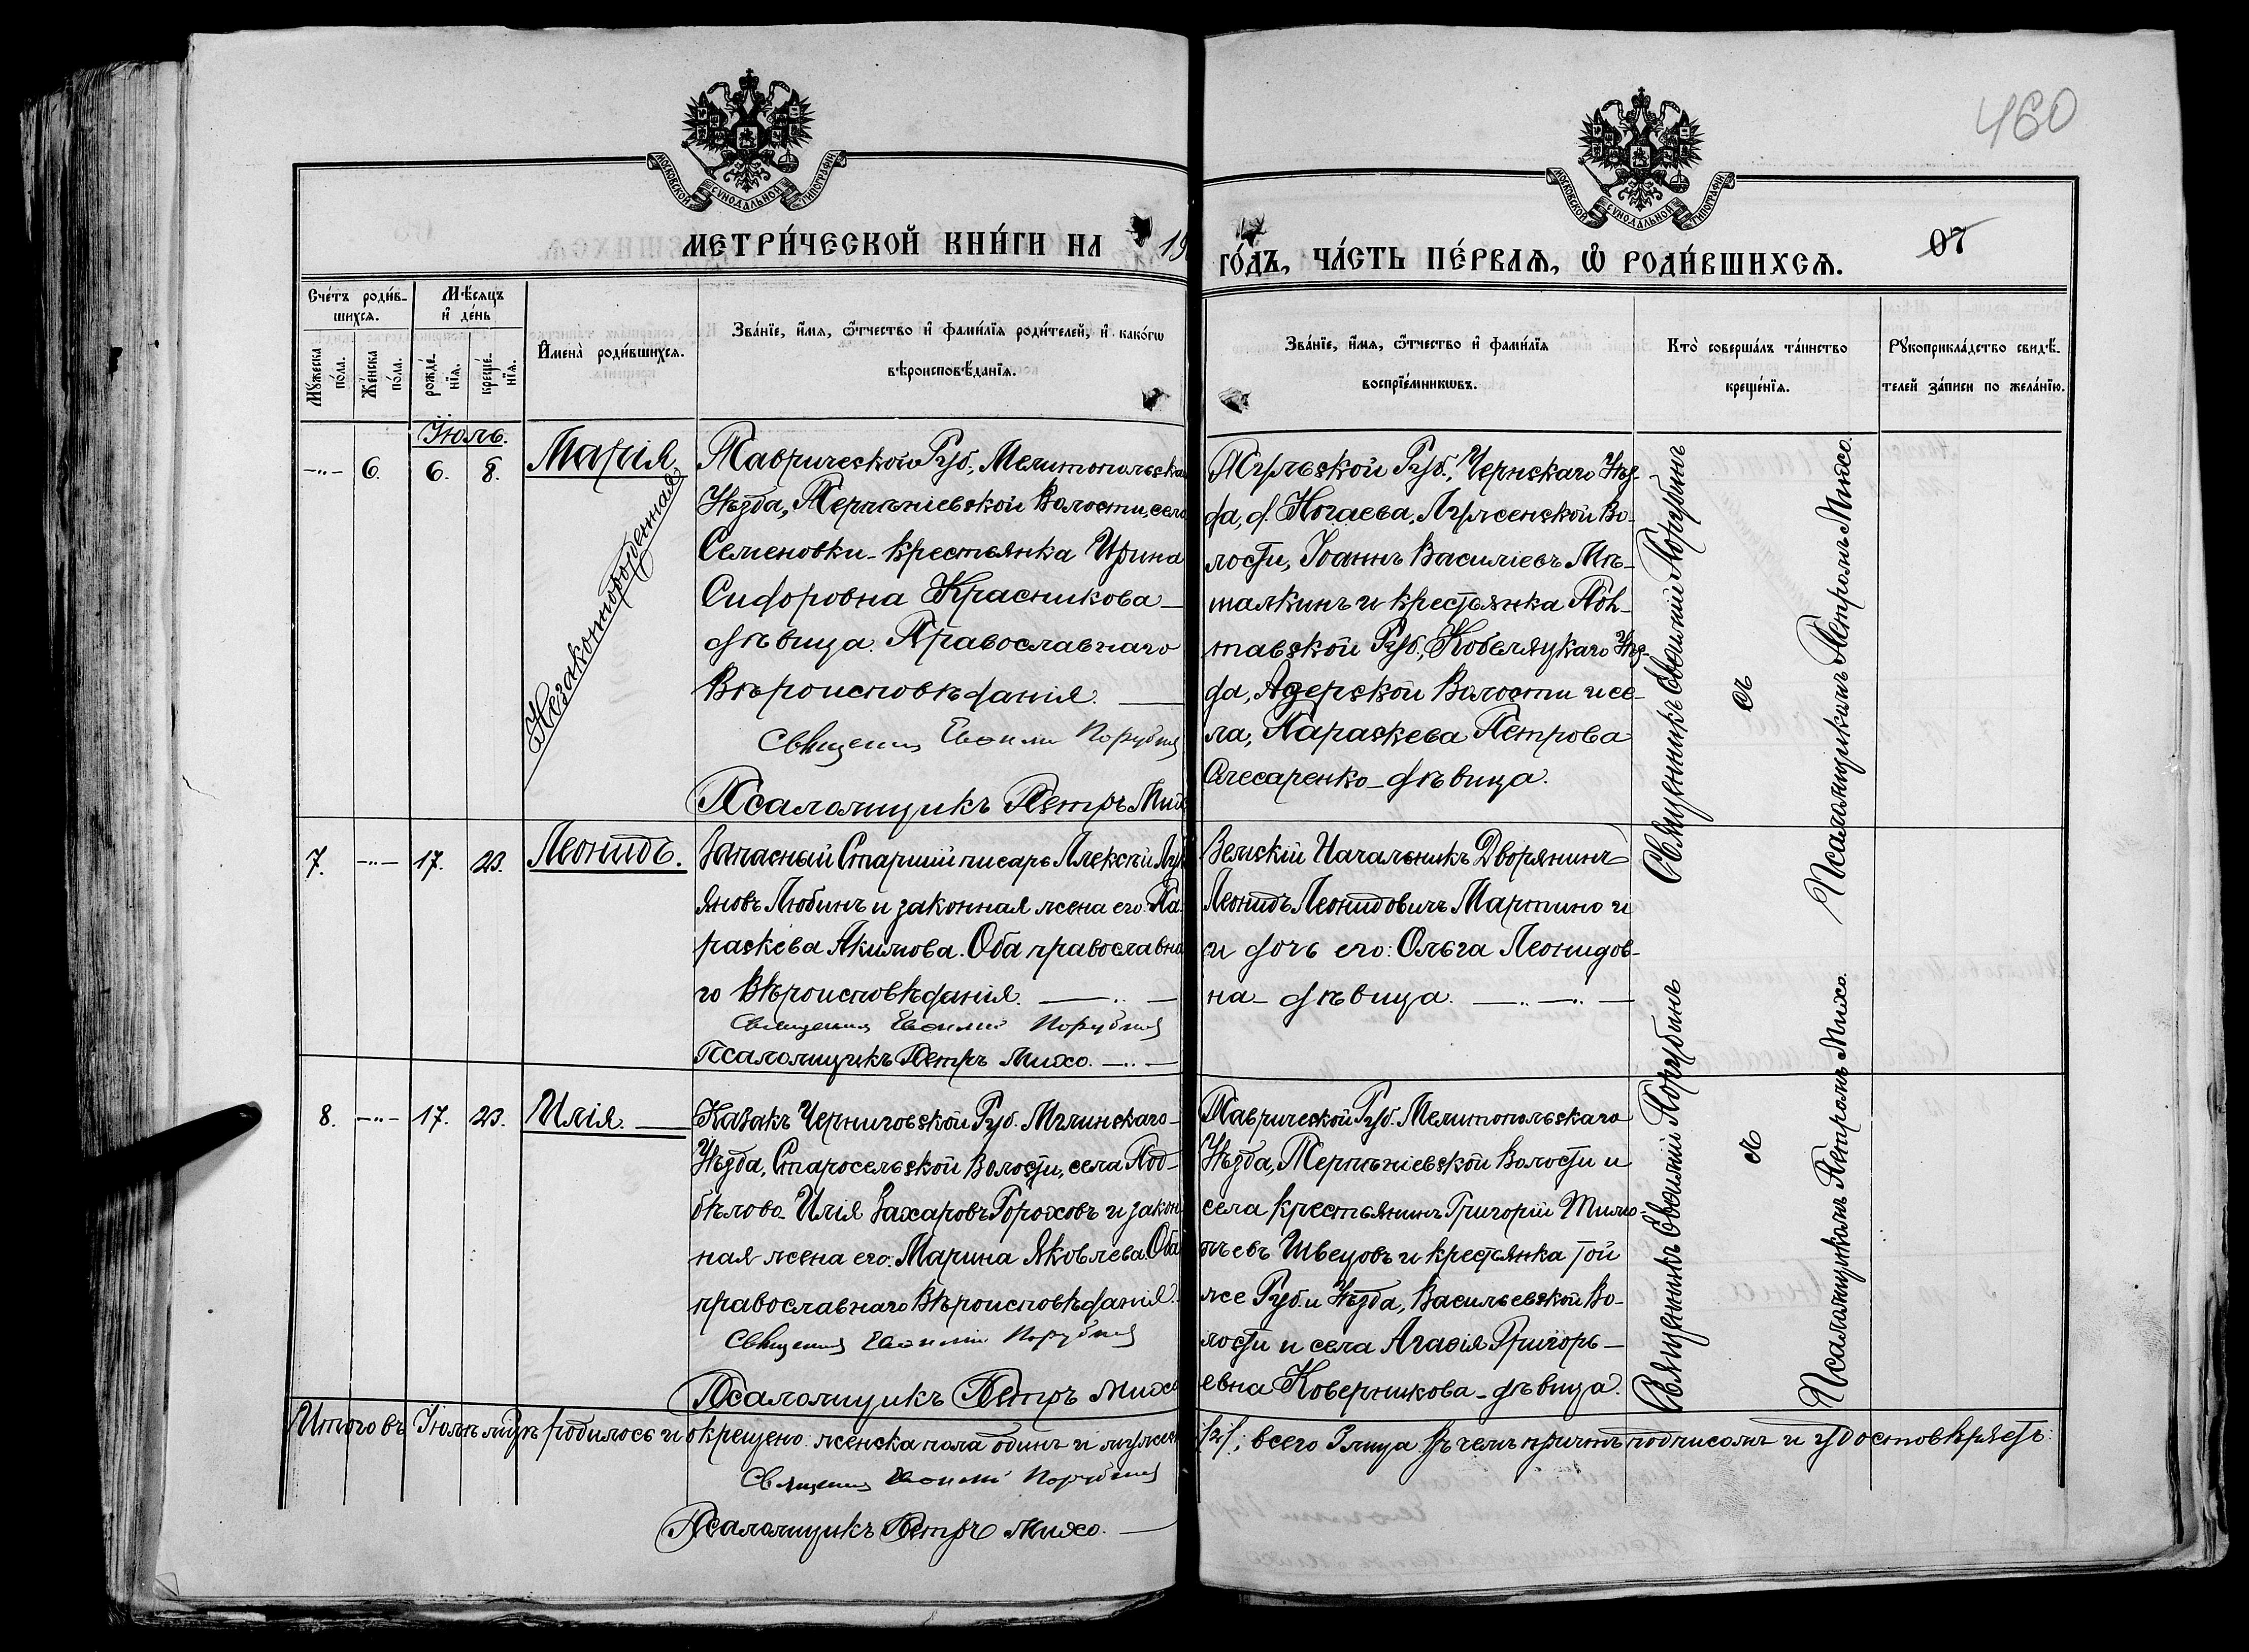 460
МОСКОВСКОЙ СУНОДАЛЬНОЙ ТИПОГРАФІИ
МОСКОВСКОЙ СУНОДАЛЬНОЙ ТИПОГРАФІИ
МЕТРИ́ЧЕСКОЙ КНИ́ГИ НА 19
ГО́ДЪ, ЧА́СТЬ ПЕ́РВАѦ, Ѡ҆ РОДИ́ВШИХСѦ. 07
Сче́тъ роди́в-
шихсѧ.
Мꙋ́жеска по́ла.
Же́нска по́ла.
Мѣ́сѧцъ
и҆ де́нь
рожде́-нїѧ.
креще́-нїѧ.
И҆мена̀ роди́вшихсѧ.
Зва́нїе, и҆́мѧ, ѻ҆́тчество и҆ фами́лїѧ роди́телей, и҆ како́гѡ
вѣроисповѣ́данїѧ.
Зва́нїе, и҆́мѧ, ѻ҆́тчество и҆ фами́лїѧ
воспрїе́мникѡвъ.
Кто̀ соверша́лъ та́инство
креще́нїѧ.
Рꙋкоприкла́дство свидѣ́-
телей за́писи по жела́нїю.
Іюль.
6. 6. 8. Марія
Незаконнорожденная
Таврической Губ., Мелитопольска
Уѣзда, Терпѣніевской Волости, села
Семеновки - крестьянка Ирина
Сидоровна Красникова -
дѣвица. Православнаго
Вѣроисповѣданія.
Священни Евѳимій Порубин
Псаломщикъ Петръ Михо
Тульской Губ., Чернскаго Уѣз-
да, д. Ногаева, Луженской Во-
лости, Іоаннъ Василіевъ Мѣ-
шалкинъ и крестьянка Пол-
тавской Губ., Кобеляцкаго Уѣз-
да, Озерской Волости и се-
ла, Параскева Петрова
Слесаренко - дѣвица.
Священникъ Евѳимій Порубинъ
съ
Псаломщикомъ Петромъ Михо.
7. 17. 23. Леонидъ.
Запасный Старшій писарь Алексѣй Лук
яновъ Любинъ и законная жена его: Па
раскева Якимова. Оба православна
го Вѣроисповѣданія.
Священни Евѳимій Порубин
Псаломщикъ Петръ Михо.
Земскій Начальникъ Дворянинъ
Леонидъ Леонидовичъ Мартино и
и дочь его: Ольга Леонидов-
на - дѣвица.
8. 17. 23. Илія.
Казакъ Черниговской Губ. Мглинскаго
Уѣзда, Старосельской Волости, села Под-
бѣлово - Илія Захаровъ Гороховъ и закон
ная жена его: Марина Яковлева. Оба
православнаго Вѣроисповѣданія.
Священни Евѳимій Порубин
Псаломщикъ Петръ Михо
Таврической Губ. Мелитопольскаго
Уѣзда, Терпѣніевской Волости и
села крестьянинъ Григорій Тимо-
ѳеевъ Швецовъ и крестьянка той
же Губ. и Уѣзда, Васильевской Во-
лости и села Агаѳія Григорь-
евна Коверникова - дѣвица.
Священникъ Евѳимій Порубинъ
съ
Псаломщикомъ Петромъ Михо.
Итого въ Іюлѣ мцѣ родилось и окрещено: женска пола одинъ и мужеск
/2/, всего 3 лица. Въ чемъ причтъ подписомъ и удостовѣряетъ:
Священни Евѳимій Порубин
Псаломщикъ Петръ Михо.